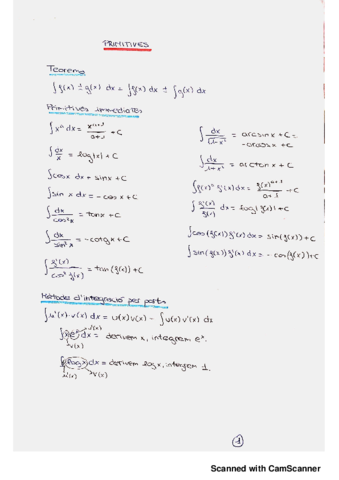 PRIMITIVES
Teorema
∫f(x) ± g(x) dx = ∫f(x) dx ± ∫g(x) dx
Primitives immediates
∫xᵃ dx = xᵃ⁺¹/a+1 + C
∫dx/x = log|x| + C
∫cosx dx = sinx + C
∫sin x dx = -cos x + C
∫dx/cos²x = tanx + C
∫dx/sin²x = -cotgx + C
∫f'(x)/cos² f(x) = tan(f(x)) + C
∫dx/√1-x² = arcsinx + C =
-arcosx + C
∫dx/1+x² = arctanx + C
∫f(x)ᵃ f'(x)dx = f(x)ᵃ⁺¹/a+1 + C
∫f'(x)/f(x) dx = log|f(x)| + C
∫cos(f(x))f'(x)dx = sin(f(x)) + C
∫sin(f(x))f'(x)dx = -cos(f(x)) + C
Mètode d'integració per parts
∫u'(x)·v(x) dx = u(x)v(x) - ∫u(x) v'(x) dx
∫xeˣ dx = derivem x, integrem eˣ.
u'(x)
v(x)
∫1·logx dx = derivem logx, integrem 1.
u'(x) v(x)
1
Scanned with CamScanner